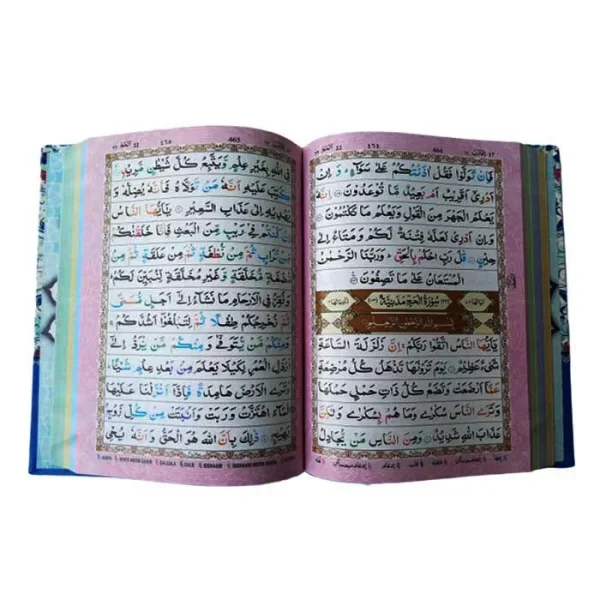 فَاِنْ تَوَلَّوْا فَقُلْ اٰذَنْتُكُمْ عَلٰى سَوَآءٍ ؕ وَ اِنْ
اَدْرِیْۤ اَقَرِیْبٌ اَمْ بَعِیْدٌ مَّا تُوْعَدُوْنَ ۝ اِنَّهٗ
یَعْلَمُ الْجَهْرَ مِنَ الْقَوْلِ وَ یَعْلَمُ مَا تَكْتُمُوْنَ ۝
وَ اِنْ اَدْرِیْ لَعَلَّهٗ فِتْنَةٌ لَّكُمْ وَ مَتَاعٌ اِلٰى
حِیْنٍ ۝ قٰلَ رَبِّ احْكُمْ بِالْحَقِّ ؕ وَ رَبُّنَا الرَّحْمٰنُ
الْمُسْتَعَانُ عَلٰى مَا تَصِفُوْنَ ۝
سُوْرَةُ الْحَجِّ مَدَنِیَّةٌ
بِسْمِ اللّٰهِ الرَّحْمٰنِ الرَّحِیْمِ
یٰۤاَیُّهَا النَّاسُ اتَّقُوْا رَبَّكُمْ ۚ اِنَّ زَلْزَلَةَ السَّاعَةِ
شَیْءٌ عَظِیْمٌ ۝ یَوْمَ تَرَوْنَهَا تَذْهَلُ كُلُّ مُرْضِعَةٍ
عَمَّاۤ اَرْضَعَتْ وَ تَضَعُ كُلُّ ذَاتِ حَمْلٍ حَمْلَهَا
وَ تَرَى النَّاسَ سُكٰرٰى وَ مَا هُمْ بِسُكٰرٰى وَ لٰكِنَّ
عَذَابَ اللّٰهِ شَدِیْدٌ ۝ وَ مِنَ النَّاسِ مَنْ یُّجَادِلُ
فِی اللّٰهِ بِغَیْرِ عِلْمٍ وَّ یَتَّبِعُ كُلَّ شَیْطٰنٍ مَّرِیْدٍ ۝
كُتِبَ عَلَیْهِ اَنَّهٗ مَنْ تَوَلَّاهُ فَاَنَّهٗ یُضِلُّهٗ وَ
یَهْدِیْهِ اِلٰى عَذَابِ السَّعِیْرِ ۝ یٰۤاَیُّهَا النَّاسُ
اِنْ كُنْتُمْ فِیْ رَیْبٍ مِّنَ الْبَعْثِ فَاِنَّا خَلَقْنٰكُمْ
مِّنْ تُرَابٍ ثُمَّ مِنْ نُّطْفَةٍ ثُمَّ مِنْ عَلَقَةٍ ثُمَّ مِنْ
مُّضْغَةٍ مُّخَلَّقَةٍ وَّ غَیْرِ مُخَلَّقَةٍ لِّنُبَیِّنَ لَكُمْ ؕ
وَ نُقِرُّ فِی الْاَرْحَامِ مَا نَشَآءُ اِلٰۤى اَجَلٍ مُّسَمًّى
ثُمَّ نُخْرِجُكُمْ طِفْلًا ثُمَّ لِتَبْلُغُوْۤا اَشُدَّكُمْ ۚ
وَ مِنْكُمْ مَّنْ یُّتَوَفّٰى وَ مِنْكُمْ مَّنْ یُّرَدُّ اِلٰۤى
اَرْذَلِ الْعُمُرِ لِكَیْلَا یَعْلَمَ مِنْۢ بَعْدِ عِلْمٍ شَیْـًٔا ؕ
وَ تَرَى الْاَرْضَ هَامِدَةً فَاِذَاۤ اَنْزَلْنَا عَلَیْهَا
الْمَآءَ اهْتَزَّتْ وَ رَبَتْ وَ اَنْۢبَتَتْ مِنْ كُلِّ زَوْجٍۭ
بَهِیْجٍ ۝ ذٰلِكَ بِاَنَّ اللّٰهَ هُوَ الْحَقُّ وَ اَنَّهٗ یُحْیِ